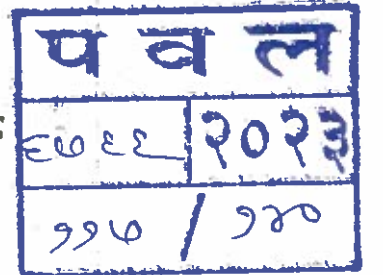 प व ल
६७६६ २०२३
११७ / १२०